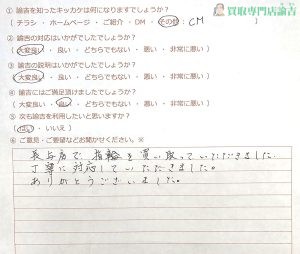 買取専門店諭吉
① 諭吉を知ったキッカケは何になりますでしょうか？
（ チラシ ・ ホームページ ・ ご紹介 ・ DM ・ その他 ： CM ）
② 諭吉の対応はいかがでしたでしょうか？
（ 大変良い ・ 良い ・ どちらでもない ・ 悪い ・ 非常に悪い ）
③ 諭吉の説明はいかがでしたでしょうか？
（ 大変良い ・ 良い ・ どちらでもない ・ 悪い ・ 非常に悪い ）
④ 諭吉にはご満足頂けましたでしょうか？
（ 大変良い ・ 良い ・ どちらでもない ・ 悪い ・ 非常に悪い ）
⑤ 次も諭吉を利用したいと思いますか？
（ はい ・ いいえ ）
⑥ ご意見・ご要望などお聞かせください。※
長与店で 指輪を買い取っていただきました。
丁寧に対応していただきました。
ありがとうございました。